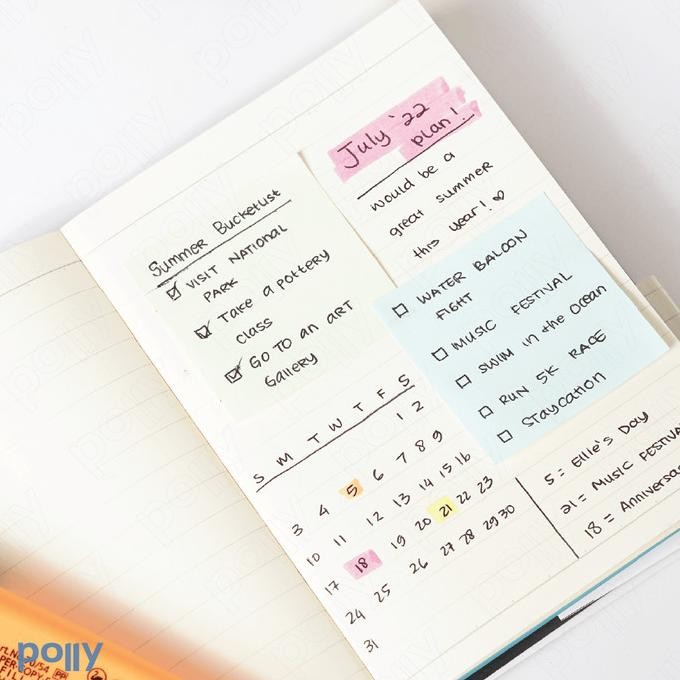 July '22
plan!
would be a
great summer
this year! ♥
Summer Bucketlist
☑ VISIT NATIONAL
PARK
☑ Take a pottery
class
☑ GO TO an ART
Gallery
☐ WATER BALOON
FIGHT
☐ MUSIC FESTIVAL
☐ SWIM in the Ocean
☐ RUN 5K RACE
☐ Staycation
S M T W T F S
1 2
3 4 5 6 7 8 9
10 11 12 13 14 15 16
17 18 19 20 21 22 23
24 25 26 27 28 29 30
31
5 = Ellie's Day
21 = MUSIC FESTIVA
18 = Anniversa
polly